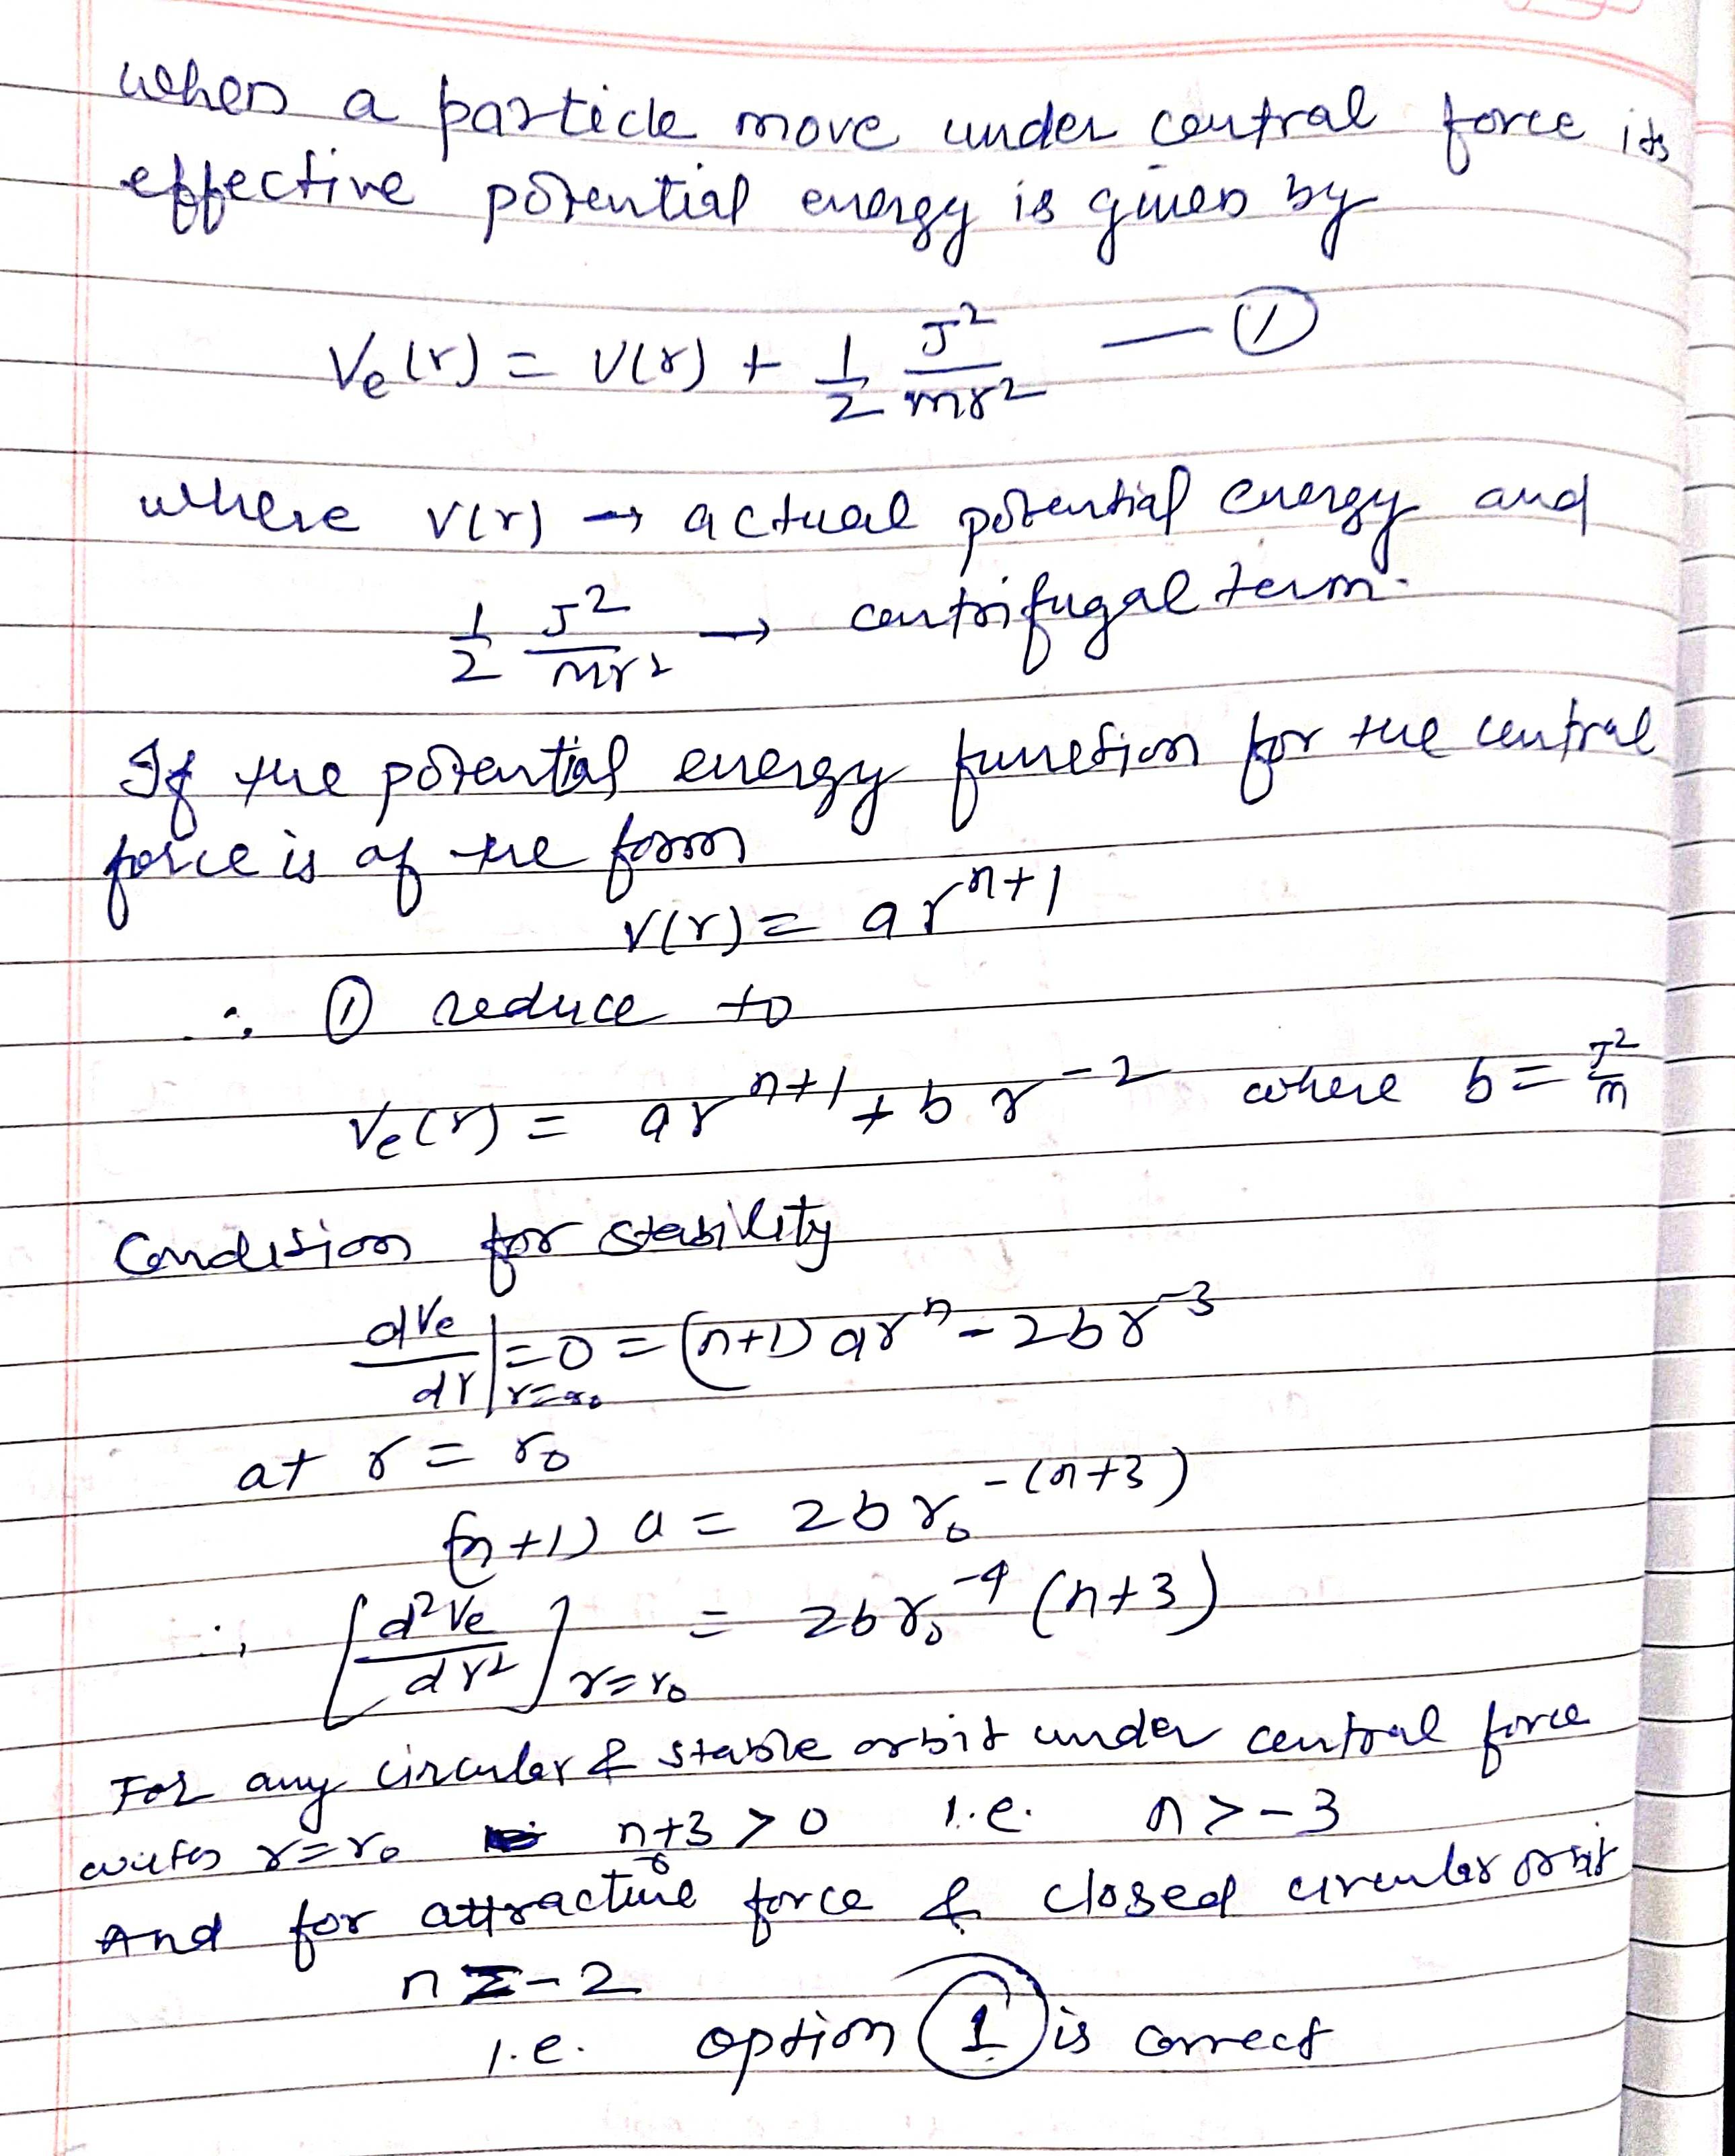 when a particle move under central force its
effective potential energy is given by
Ve(r) = V(r) + 1/2 J²/mr² — ①
where V(r) → actual potential energy and
1/2 J²/mr² → centrifugal term.
If the potential energy function for the central
force is of the form
V(r) = ar^(n+1)
∴ ① reduce to
Ve(r) = ar^(n+1) + br^(-2) where b = J²/m
Condition for stability
dVe/dr |r=r₀ = 0 = (n+1)ar^n - 2br^(-3)
at r = r₀
(n+1) a = 2br₀^(-(n+3))
∴ [d²Ve/dr²]r=r₀ = 2br₀^(-4) (n+3)
For any circular & stable orbit under central force
with r=r₀ n+3 > 0 i.e. n > -3
And for attractive force & closed circular orbit
n = -2
i.e. option ① is correct